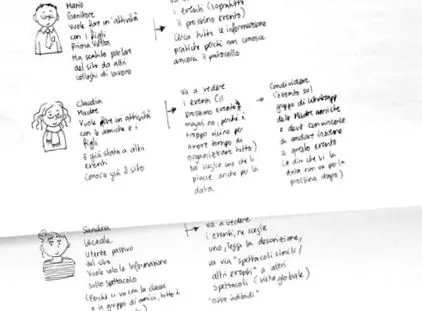 Mario
Genitore
Vuole fare un'attività
con i figli
Prima volta
Ha sentito parlare
del sito da altri
colleghi di lavoro
i eventi (sopratutto
il prossimo evento)
Cerca tutte le informazione
pratiche perché non conosce
ancora il
Claudia
Madre
Vuole fare un'attività
con le amiche e i
figli
E già stata a altri
eventi
Conosce già il sito
va a vedere
i eventi (il
prossimo evento
magari no, perché è
troppo vicino per
avere tempo da
organizzare tutto)
Ne sceglie uno che li
piace anche per la
data
Condividere
l'evento sul
gruppo di whatsapp
delle Madri amiche
e deve convincerle
da andare insieme
a questo evento
(e dire che si la
data non va per la
prossima dopo)
Sandra
Liceale
Utente passivo
del sito
Vuole solo le informazione
sullo spettacolo
(Perché ci va con la classe
o in gruppo di amici, tutto è
va a vedere
i eventi, ne sceglie
uno, legge la descrizione,
va via "spettacoli simili/
altri eventi" a altri
spettacoli (vista globale)